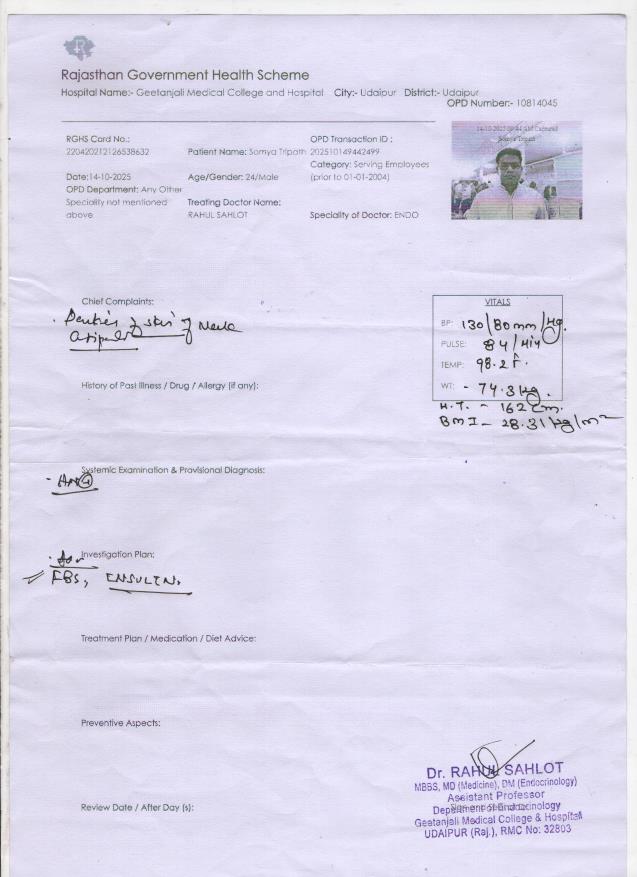 R
Rajasthan Government Health Scheme
Hospital Name:- Geetanjali Medical College and Hospital City:- Udaipur District:- Udaipur
OPD Number:- 10814045
RGHS Card No.:
220420212126538632
Patient Name: Somya Tripath
OPD Transaction ID :
202510149442499
Category: Serving Employees
(prior to 01-01-2004)
Date:14-10-2025
Age/Gender: 24/Male
OPD Department: Any Other
Speciality not mentioned
above
Treating Doctor Name:
RAHUL SAHLOT
Speciality of Doctor: ENDO
Somya Tripath
Chief Complaints:
of skin of
VITALS
BP: 130/80mm/Hg.
PULSE: 84/Min
TEMP: 98.2 F.
WT: - 74.3 kg.
H.T. - 162 cm.
BMI - 28.31 kg/m2
History of Past Illness / Drug / Allergy (if any):
Systemic Examination & Provisional Diagnosis:
Investigation Plan:
FBS, INSULIN.
Treatment Plan / Medication / Diet Advice:
Preventive Aspects:
Review Date / After Day (s):
Dr. RAHUL SAHLOT
MBBS, MD (Medicine), DM (Endocrinology)
Assistant Professor
Department of Endocrinology
Geetanjali Medical College & Hospital
UDAIPUR (Raj.), RMC No: 32803